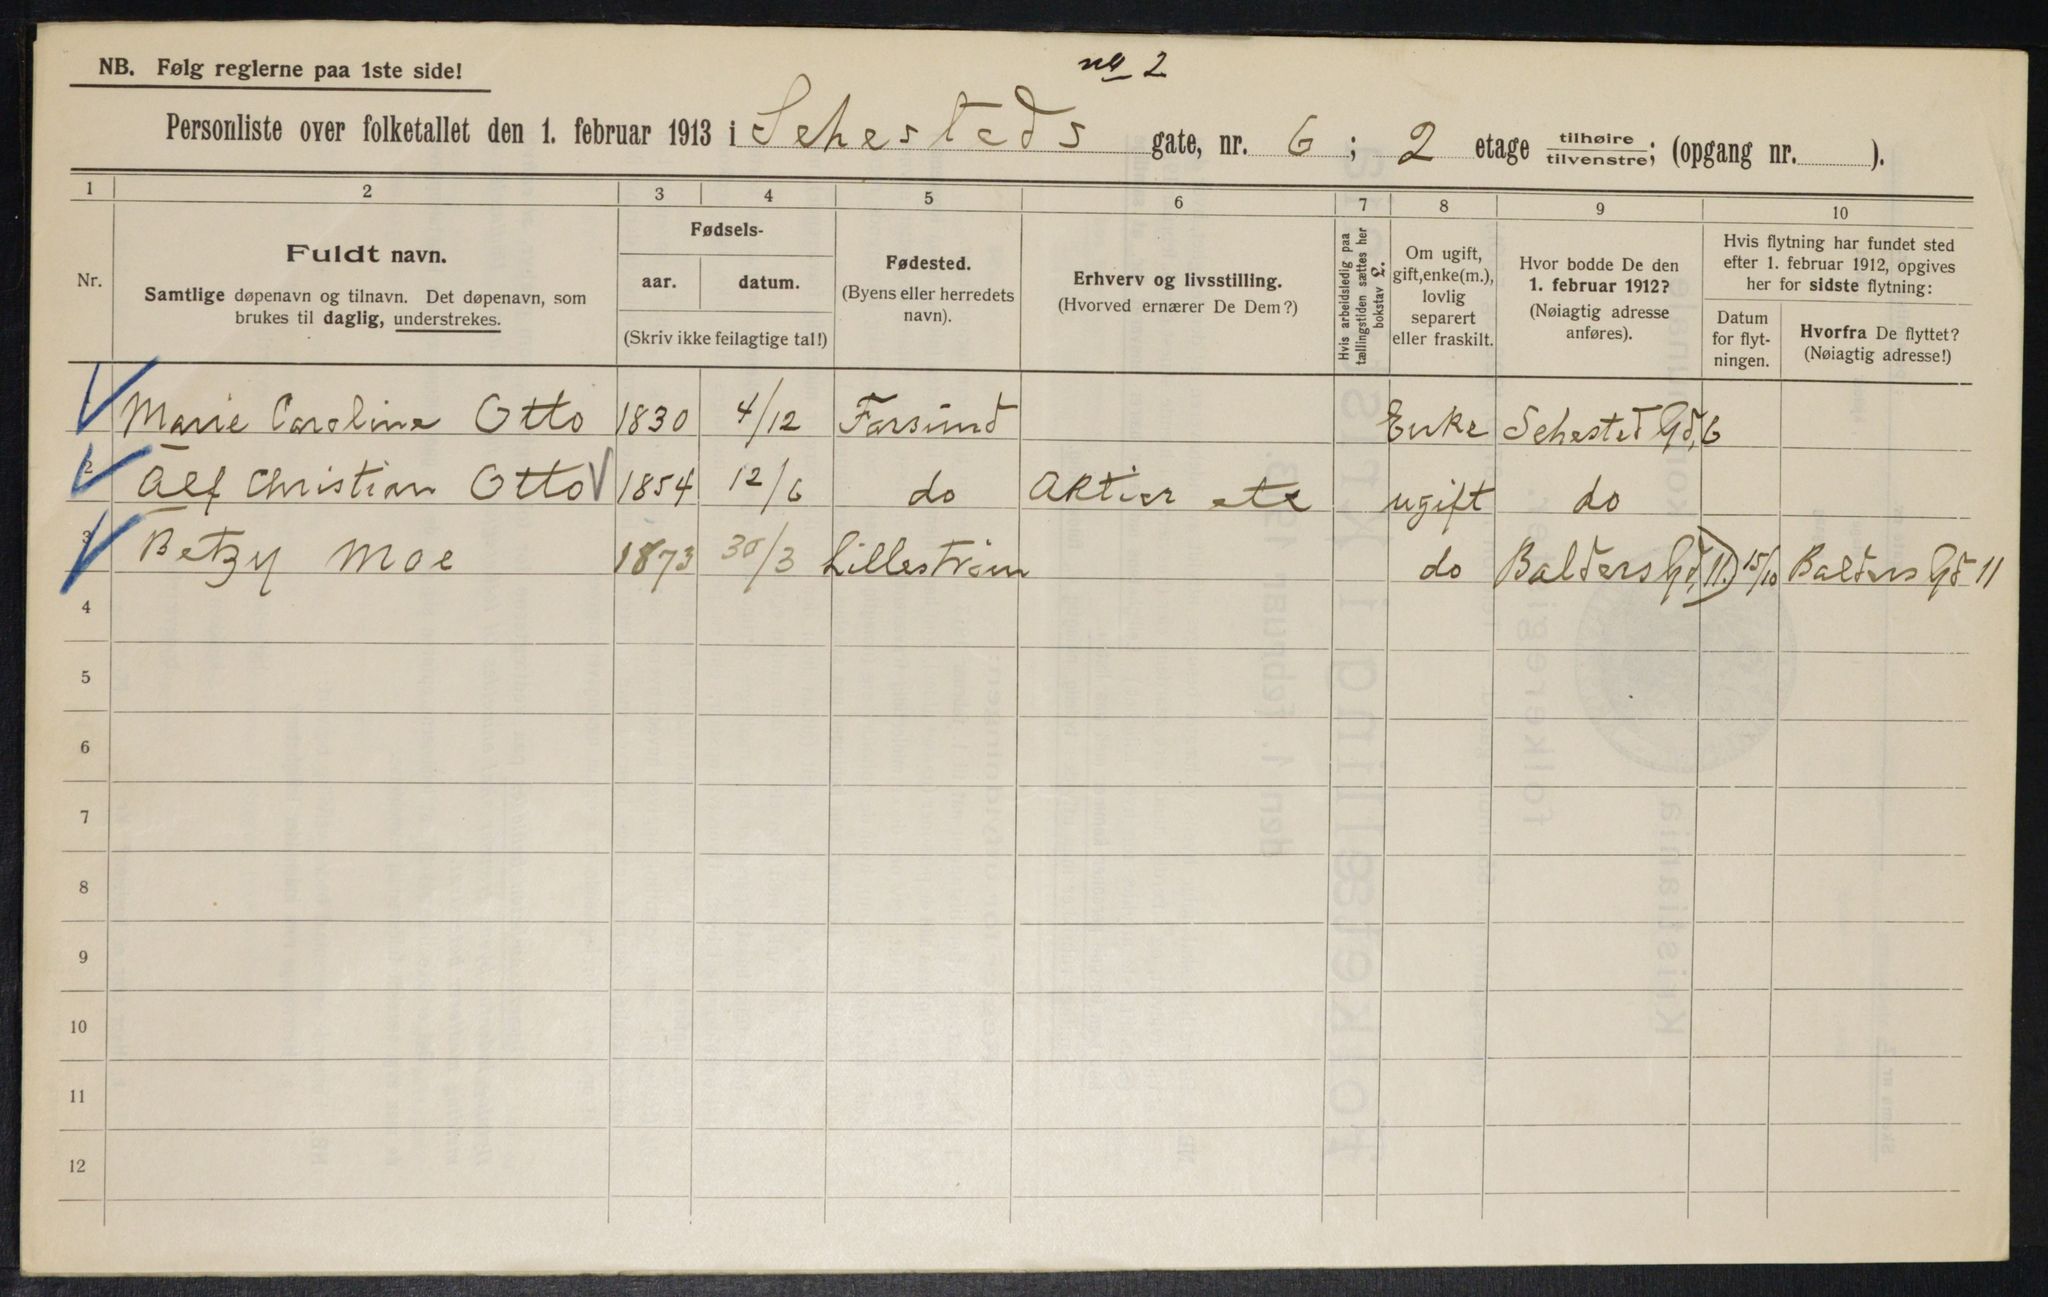 no 2
NB. Følg reglerne paa 1ste side!
Personliste over folketallet den 1. februar 1913 i Sehesteds gate, nr. 6; 2 etage tilhøire/tilvenstre; (opgang nr. ).
1 2 3 4 5 6 7 8 9 10
Nr.
Fuldt navn.
Samtlige døpenavn og tilnavn. Det døpenavn, som
brukes til daglig, understrekes.
Fødsels-
aar. datum.
(Skriv ikke feilagtige tal!)
Fødested.
(Byens eller herredets
navn).
Erhverv og livsstilling.
(Hvorved ernærer De Dem?)
Hvis arbeidsledig paa
tællingstiden sættes her
bokstav L.
Om ugift,
gift, enke(m.),
lovlig
separert
eller fraskilt.
Hvor bodde De den
1. februar 1912?
(Nøiagtig adresse
anføres).
Hvis flytning har fundet sted
efter 1. februar 1912, opgives
her for sidste flytning:
Datum
for flyt-
ningen.
Hvorfra De flyttet?
(Nøiagtig adresse!)
Marie Caroline Otto 1830 4/12 Farsund Enke Sehested Gd, 6
2 Alf Christian Otto 1854 12/6 do Aktier etc ugift do
3 Betzy Moe 1873 30/3 Lillestrøm do Balders Gd, 11.) 15/10 Balders Gd 11
4
5
6
7
8
9
10
11
12